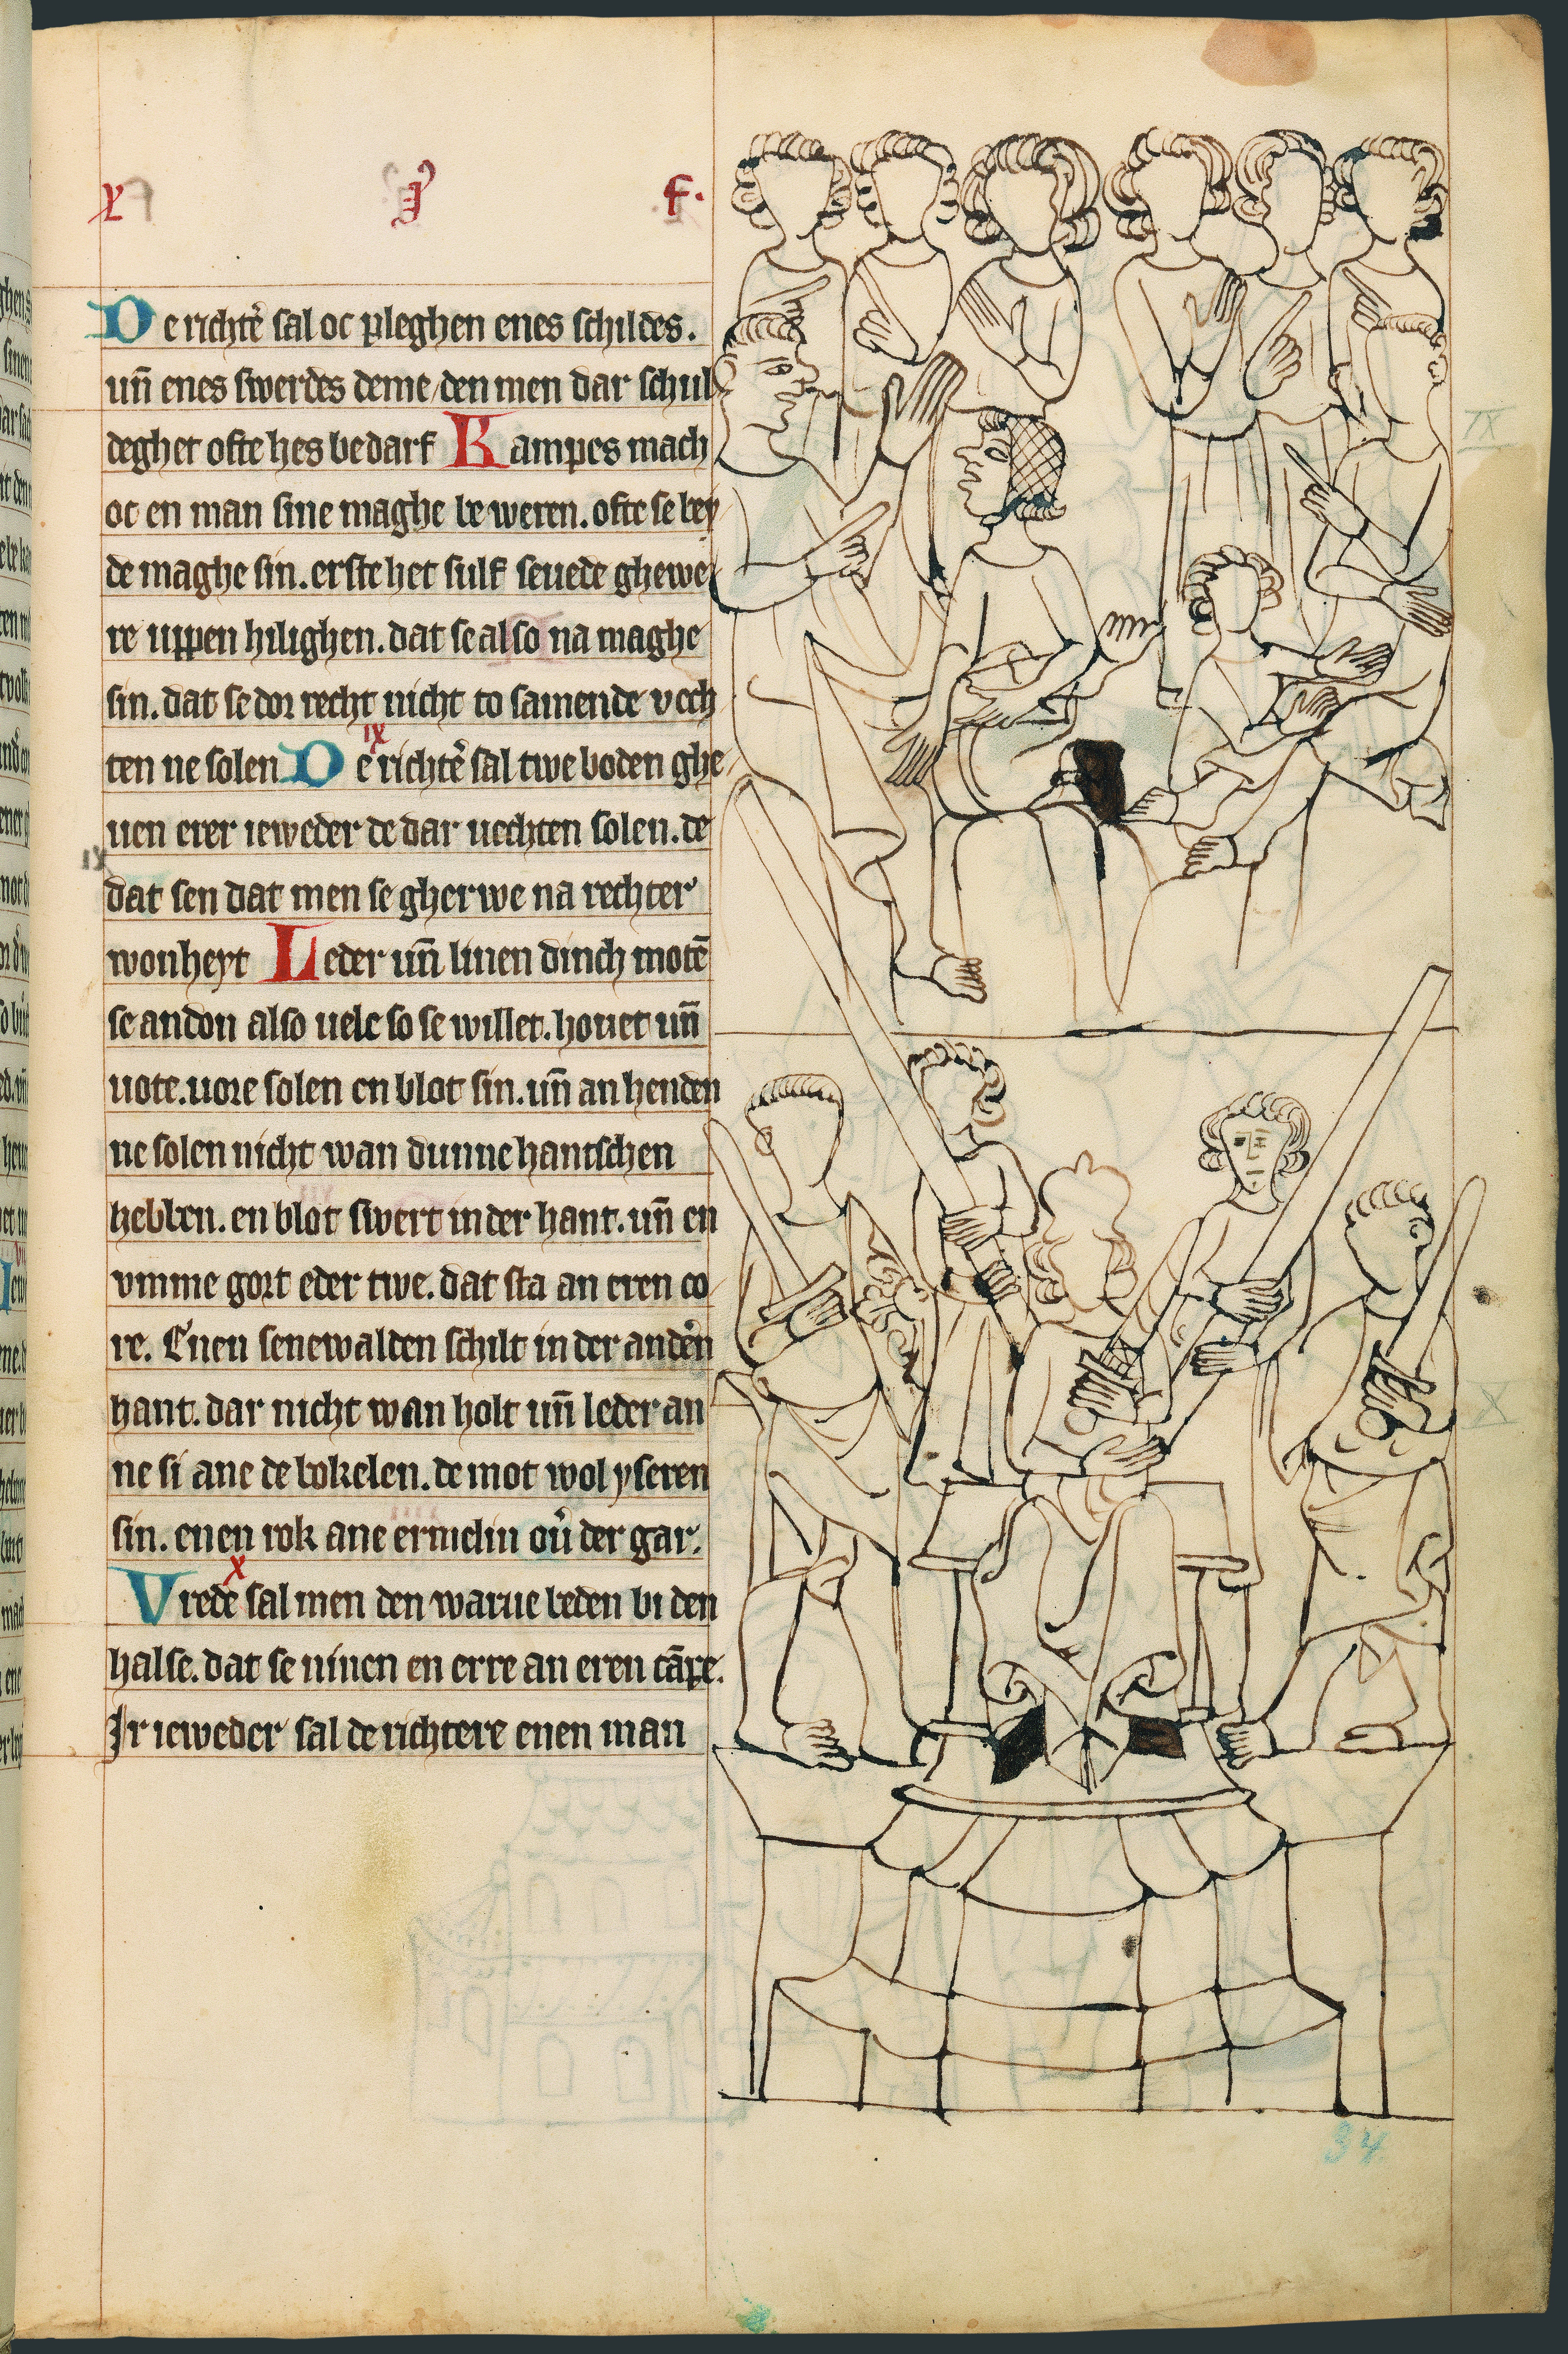 x j f.
De richt̉ sal oc pleghen enes schildes.
un̄ enes swerdes deme / den men dar schul
deghet ofte hes bedarf Kampes mach
oc en man sine maghe be weren. ofte se bey
de maghe sin. erstehet sulf seuede ghewe
re uppen hilighen. dat se also na maghe
sin. dat se dor recht nicht to samende vech
ten ne solen De richt̉ sal twe boden ghe
ix
uen erer ieweder de dar uechten solen. de
dat sen dat men se gherwe na rechter
IX
wonheyt Leder un̄ linen dinch motē
se andon also uele so se willet. houet un̄
uote. uore solen en blot sin. un̄ an henden
ne solen nicht wan dunne hantschen
hebben. en blot swert in der hant. un̄ en
vmme gort eder twe. dat sta an eren co
re. Enen senewalden schilt in der anden̉
hant. dar nicht wan holt un̄ leder an
ne si ane de bokelen. de mot wol yseren
sin. enen rok ane ermelin ou̓ der gar.
x
Vrede sal men den warue beden bi den
halse. dat se ninen en erre an eren cāpe.
Ir ieweder sal de richtere enen man
IX
X
34